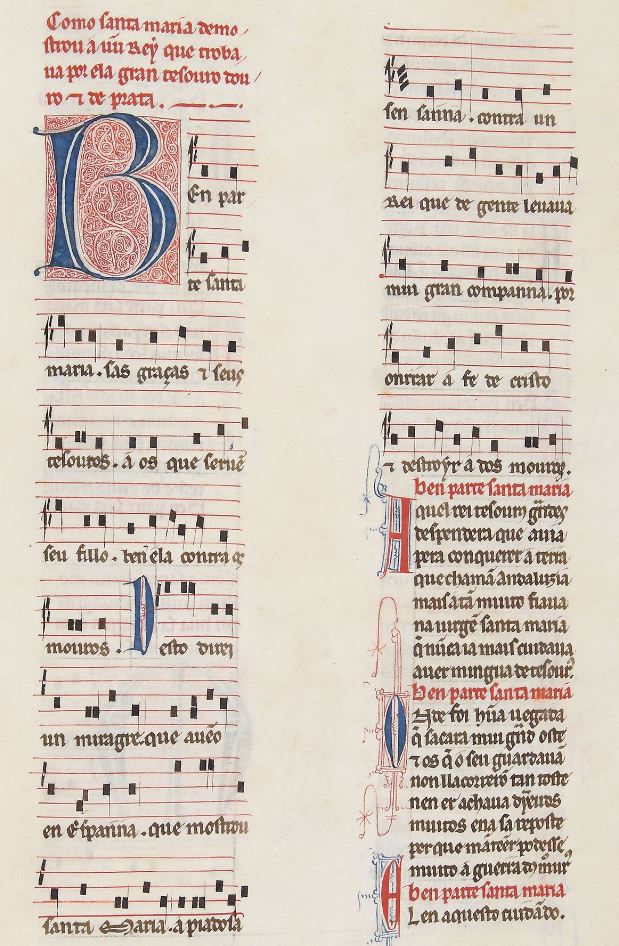 Como santa maria demo
strou a un Rey que troba
ua por ela gran tesouro dou
ro ⁊ de prata.
BEn par
te santa
maria. sas graças ⁊ seus
tesouros. á os que seruẽ
seu fillo. ben ela contra os
mouros. Desto direi
un miragre. que auẽo
en Espanna. que mostrou
santa Maria. a piadosa
sen sanna. contra un
Rei que de gente leuaua
mui gran companna. por
onrrar a fe de cristo
⁊ destroyr a dos mouros.
ben parte santa maria
Aquel rei tesouros grãdes
despendera que auia
pera conquerer a terra
que chamã andaluzia
mais atã muito fiaua
na uirgẽ santa maria
q̃ nũca ia mais cuidaua
auer mingua de tesour'.
ben parte santa maria
Onde foi hũa uegada
q̃ sacara mui grãd oste
⁊ os q̃ o seu guardauã
non ll acorrerõ tan toste
nen er achaua dỹeiros
muitos ena sa reposte
per que mãteer podesse
muito a guerra dos mour'
ben parte santa maria
E L en aquesto cuidãdo.